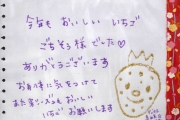 今年も おいしい いちご
ごちそう様でした♡
ありがとうございます
お身体に気をつけて
また来シーズンもおいしい
いちご お願いします